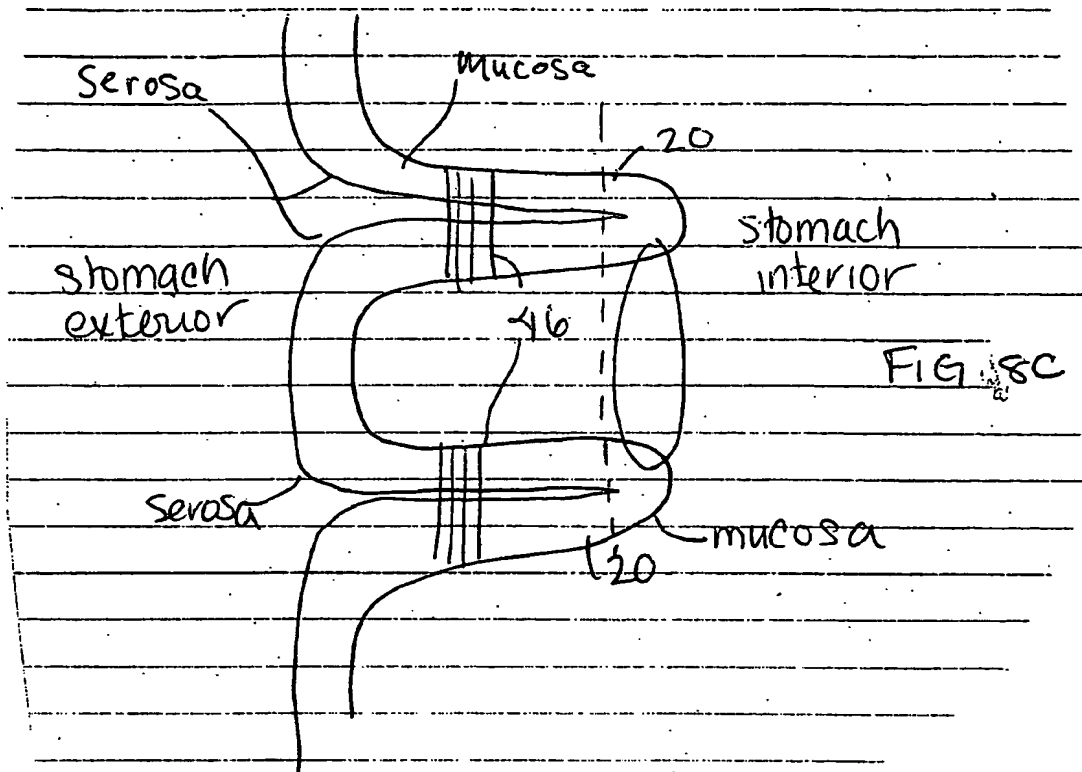 Serosa
mucosa
20
stomach
interior
stomach
exterior
46
FIG. 8C
serosa
mucosa
20